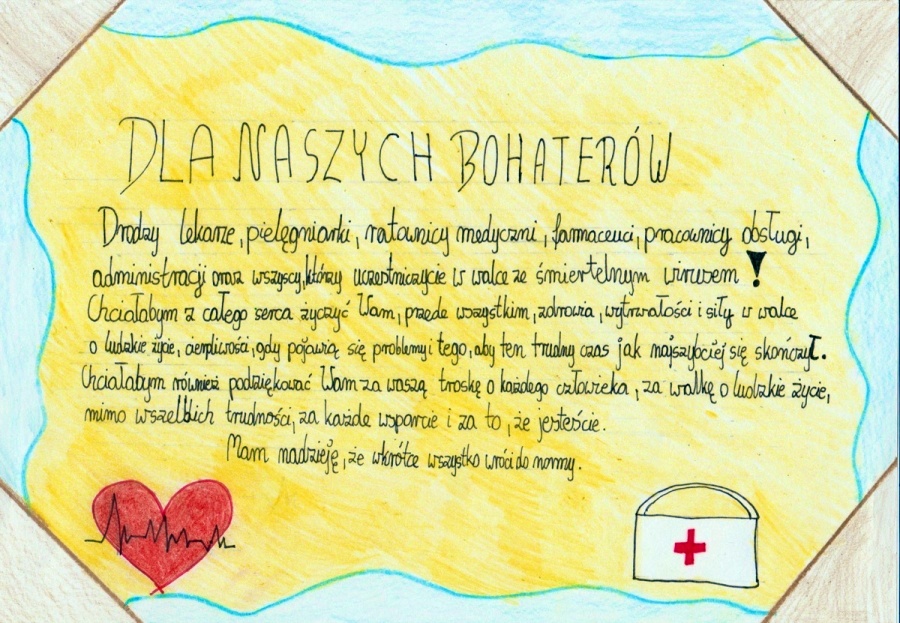 DLA NASZYCH BOHATERÓW
Drodzy lekarze, pielęgniarki, ratownicy medyczni, farmaceuci, pracownicy obsługi,
administracji oraz wszyscy, którzy uczestniczycie w walce ze śmiertelnym wirusem!
Chciałabym z całego serca życzyć Wam, przede wszystkim, zdrowia, wytrwałości i siły w walce
o ludzkie życie, cierpliwości, gdy pojawią się problemy i tego, aby ten trudny czas jak najszybciej się skończył.
Chciałabym również podziękować Wam za waszą troskę o każdego człowieka, za walkę o ludzkie życie,
mimo wszelkich trudności, za każde wsparcie i za to, że jesteście.
Mam nadzieję, że wkrótce wszystko wróci do normy.